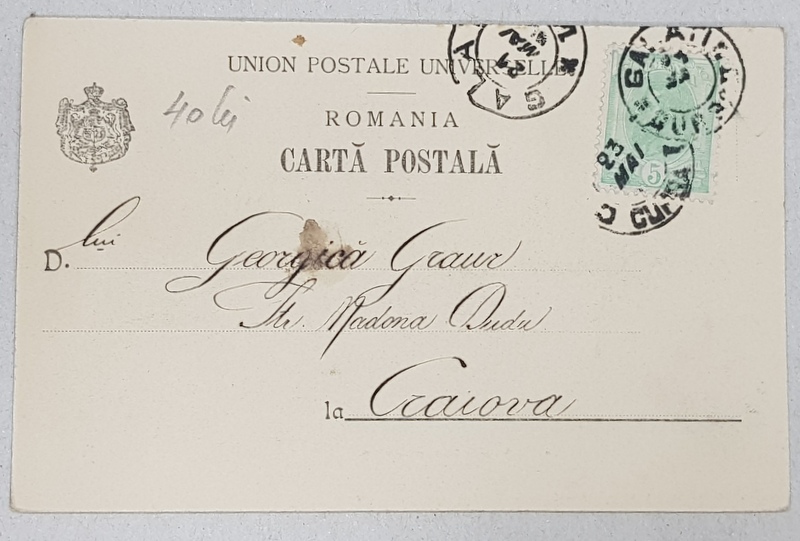 UNION POSTALE UNIVERSELLE
40 lei
ROMANIA
CARTĂ POSTALĂ
D. lui Georgică Graur
Str. Madona Dudu
la Craiova
5
23
MAI
21
MAI
GAL